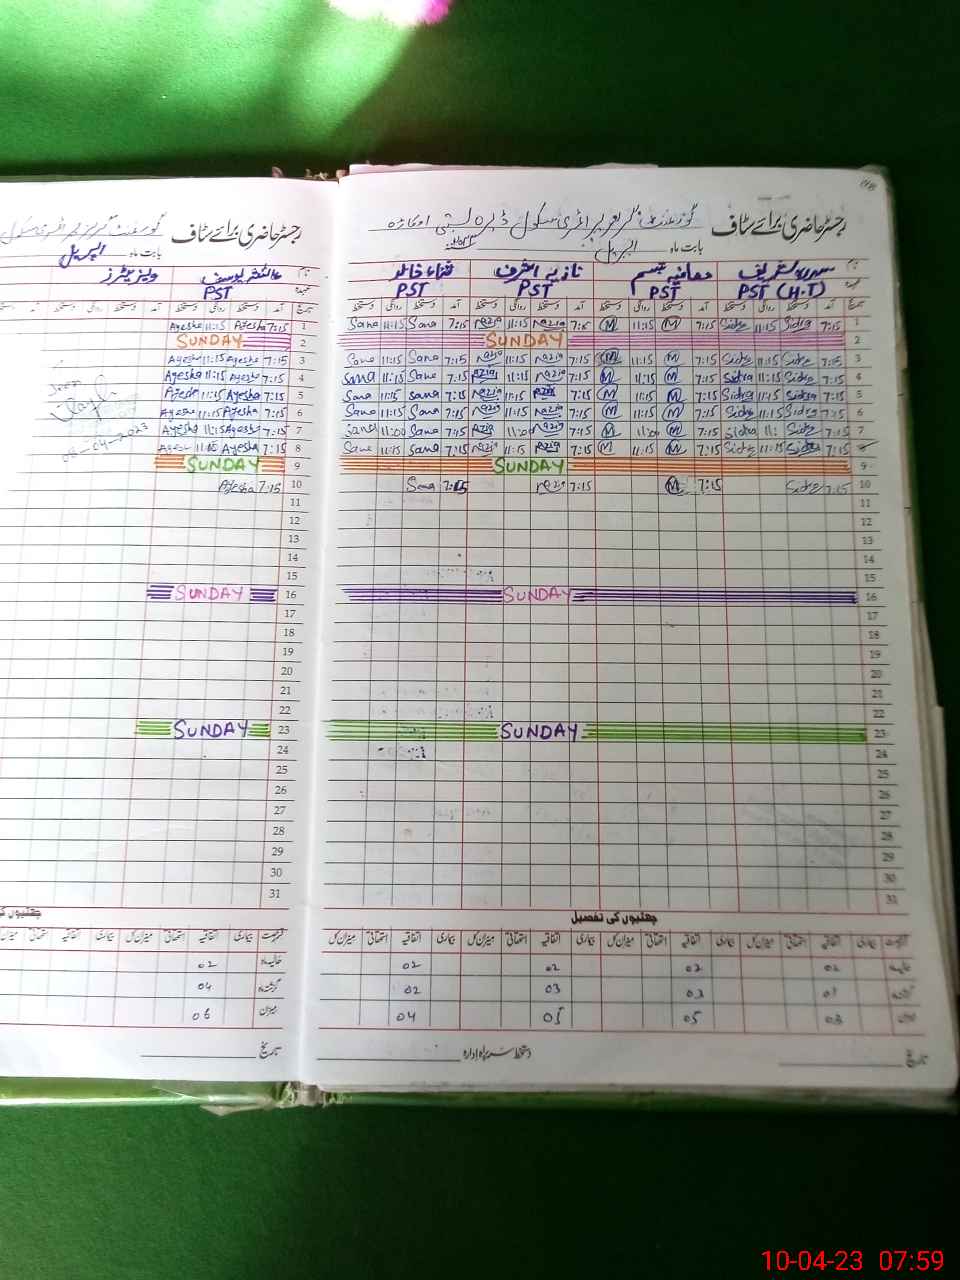 رجسٹر حاضری برائے سٹاف گورنمنٹ پرائمری سکول اوکاڑہ
بابت ماہ اپریل
نازیہ اشرف
PST PST PST PST (H.T)
آمد دستخط روانگی دستخط تاریخ
Sana 11:15 Sana 7:15 Nazia 11:15 Nazia 7:15 M 11:15 M 7:15 Sidra 11:15 Sidra 7:15 1
SUNDAY 2
Sana 11:15 Sana 7:15 Nazia 11:15 Nazia 7:15 M 11:15 M 7:15 Sidra 11:15 Sidra 7:15 3
Sana 11:15 Sana 7:15 Nazia 11:15 Nazia 7:15 M 11:15 M 7:15 Sidra 11:15 Sidra 7:15 4
Sana 11:15 Sana 7:15 Nazia 11:15 Nazia 7:15 M 11:15 M 7:15 Sidra 11:15 Sidra 7:15 5
Sana 11:15 Sana 7:15 Nazia 11:15 Nazia 7:15 M 11:15 M 7:15 Sidra 11:15 Sidra 7:15 6
Sana 11:00 Sana 7:15 Nazia 11:00 Nazia 7:15 M 11:00 M 7:15 Sidra 11: Sidra 7:15 7
Sana 11:15 Sana 7:15 Nazia 11:15 Nazia 7:15 M 11:15 M 7:15 Sidra 11:15 Sidra 7:15 8
SUNDAY 9
Sana 7:15 Nazia 7:15 M 7:15 Sidra 7:15 10
11
12
13
14
15
SUNDAY 16
17
18
19
20
21
22
SUNDAY 23
24
25
26
27
28
29
30
31
چھٹیوں کی تفصیل
بیماری اتفاقیہ استحقاقی میزان کل
02 02 02 02
02 03 03 01
04 05 05 03
دستخط سربراہ ادارہ تاریخ
رجسٹر حاضری برائے سٹاف
بابت ماہ اپریل
عائشہ یوسف
وزیٹرز
PST
Ayesha 11:15 Ayesha 7:15 1
SUNDAY 2
Ayesha 11:15 Ayesha 7:15 3
Ayesha 11:15 Ayesha 7:15 4
Ayesha 11:15 Ayesha 7:15 5
Ayesha 11:15 Ayesha 7:15 6
Ayesha 11:15 Ayesha 7:15 7
Ayesha 11:15 Ayesha 7:15 8
SUNDAY 9
Ayesha 7:15 10
11
12
13
14
15
SUNDAY 16
17
18
19
20
21
22
SUNDAY 23
24
25
26
27
28
29
30
31
بیماری اتفاقیہ استحقاقی میزان کل
02
04
06
تاریخ
10-04-23 07:59